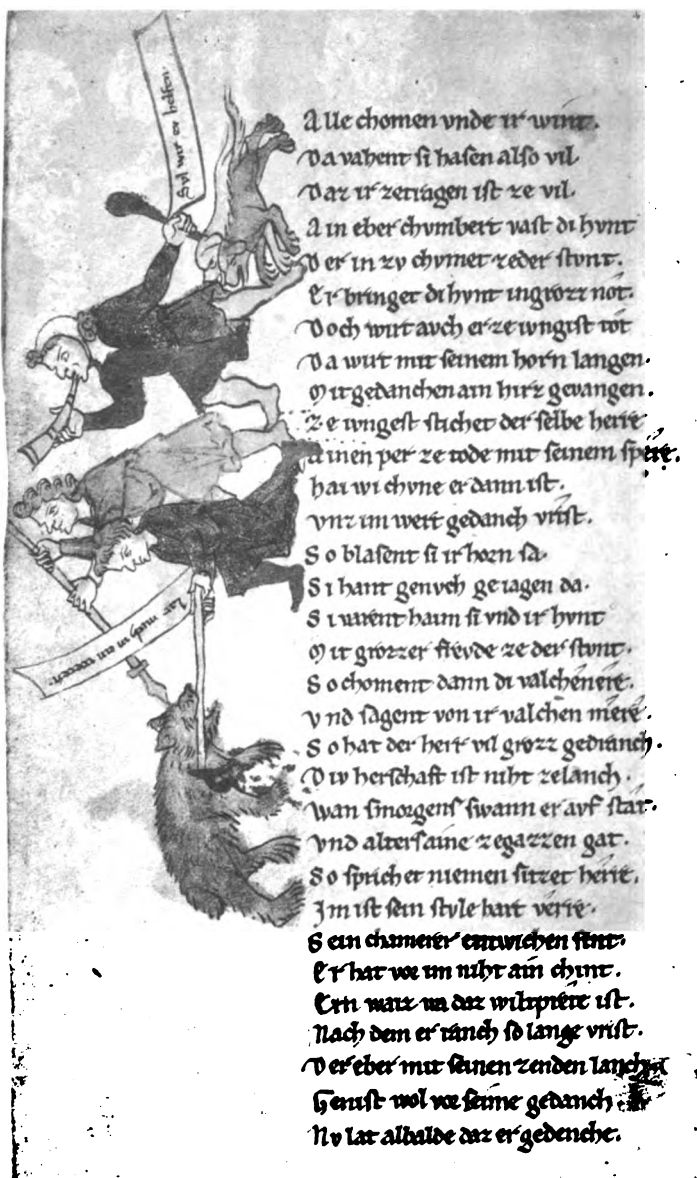 Syl wir er helfen.
Lat mich in an wercen.
Alle chomen vnde ir wint.
Da vahent si hasen also vil
Daz ir zetragen ist ze vil.
Ain eber chvmbert vast di hvnt
Der in zv chvmet zeder stvnt.
Er bringet di hvnt ingrozz not.
Doch wirt avch er ze ivngist tot
Da wirt mit seinem horn langen.
Mit gedanchen ain hirz gevangen.
Ze ivngest stichet der selbe herre
Ainen per ze tode mit seinem spere.
hai wi chvne er dann ist.
vnz im wert gedanch vrist.
So blasent si ir horn sa.
Si hant genvch geiagen da.
Si varent haim si vnd ir hvnt
Mit grozzer frevde ze der stvnt.
So choment dann di valchenere.
vnd sagent von ir valchen mere.
So hat der herr vil grozz gedranch.
Div herschaft ist niht zelanch.
wan smorgens swann er avf stat.
vnd altersaine zegazzen gat.
So sprich er niemen sitzet herre.
Im ist sein style hart verre.
Sein chamerer entwichen sint.
Er hat vor im niht ain chint.
Ern waiz wa daz wiltprete ist.
Nach dem er ranch so lange vrist.
Der eber mit seinen zenden lanch
Genist wol vor seime gedanch.
Nv lat albalde daz er gedenche.